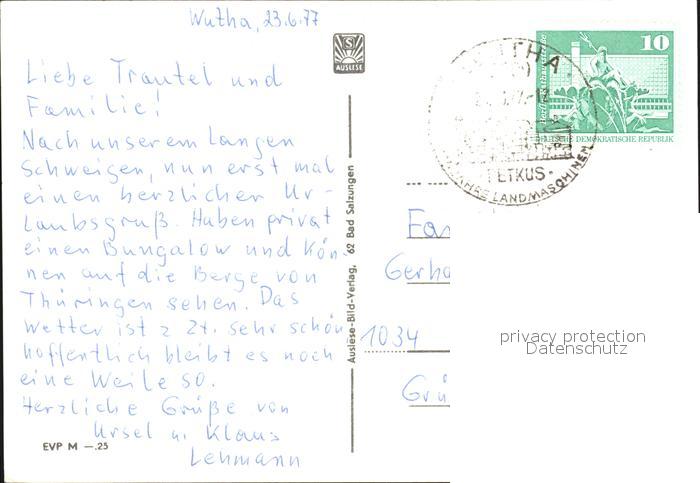 Wutha, 23.6.77
Liebe Trautel und
Familie!
Nach unserem langen
Schweigen, nun erst mal
einen herzlichen Ur-
laubsgruß. Haben privat
einen Bungalow und kön-
nen auf die Berge von
Thüringen sehen. Das
Wetter ist z Zt. sehr schön
hoffentlich bleibt es noch
eine Weile so.
Herzliche Grüße von
Ursel u. Klaus
Lehmann
EVP M —.25
S
AUSLESE
Auslese-Bild-Verlag, 62 Bad Salzungen
WUTHA
PETKUS
JAHRE LANDMASCHINEN
10
DEUTSCHE DEMOKRATISCHE REPUBLIK
Fa
Gerha
1034
Grü
privacy protection
Datenschutz